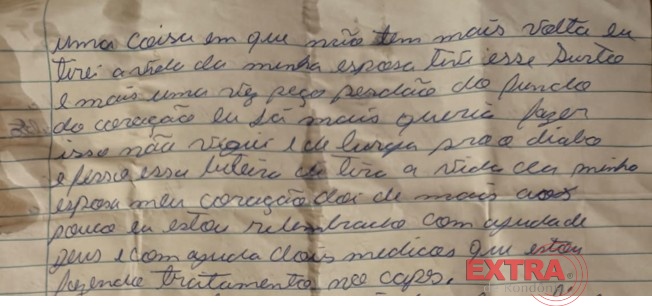 uma coisa em que não tem mais volta eu
tirei a vida da minha esposa tive esse surto
e mais uma vez peço perdão do fundo
do coração eu já mais queria fazer
isso não vigiei e de brecha pra o diabo
e fis essa de tira a vida da minha
esposa meu coração doi de mais aos
pouco eu estou relembrado com ajuda de
Deus e com ajuda dois medicos que estou
fazendo tratamento no caps.
EXTRA